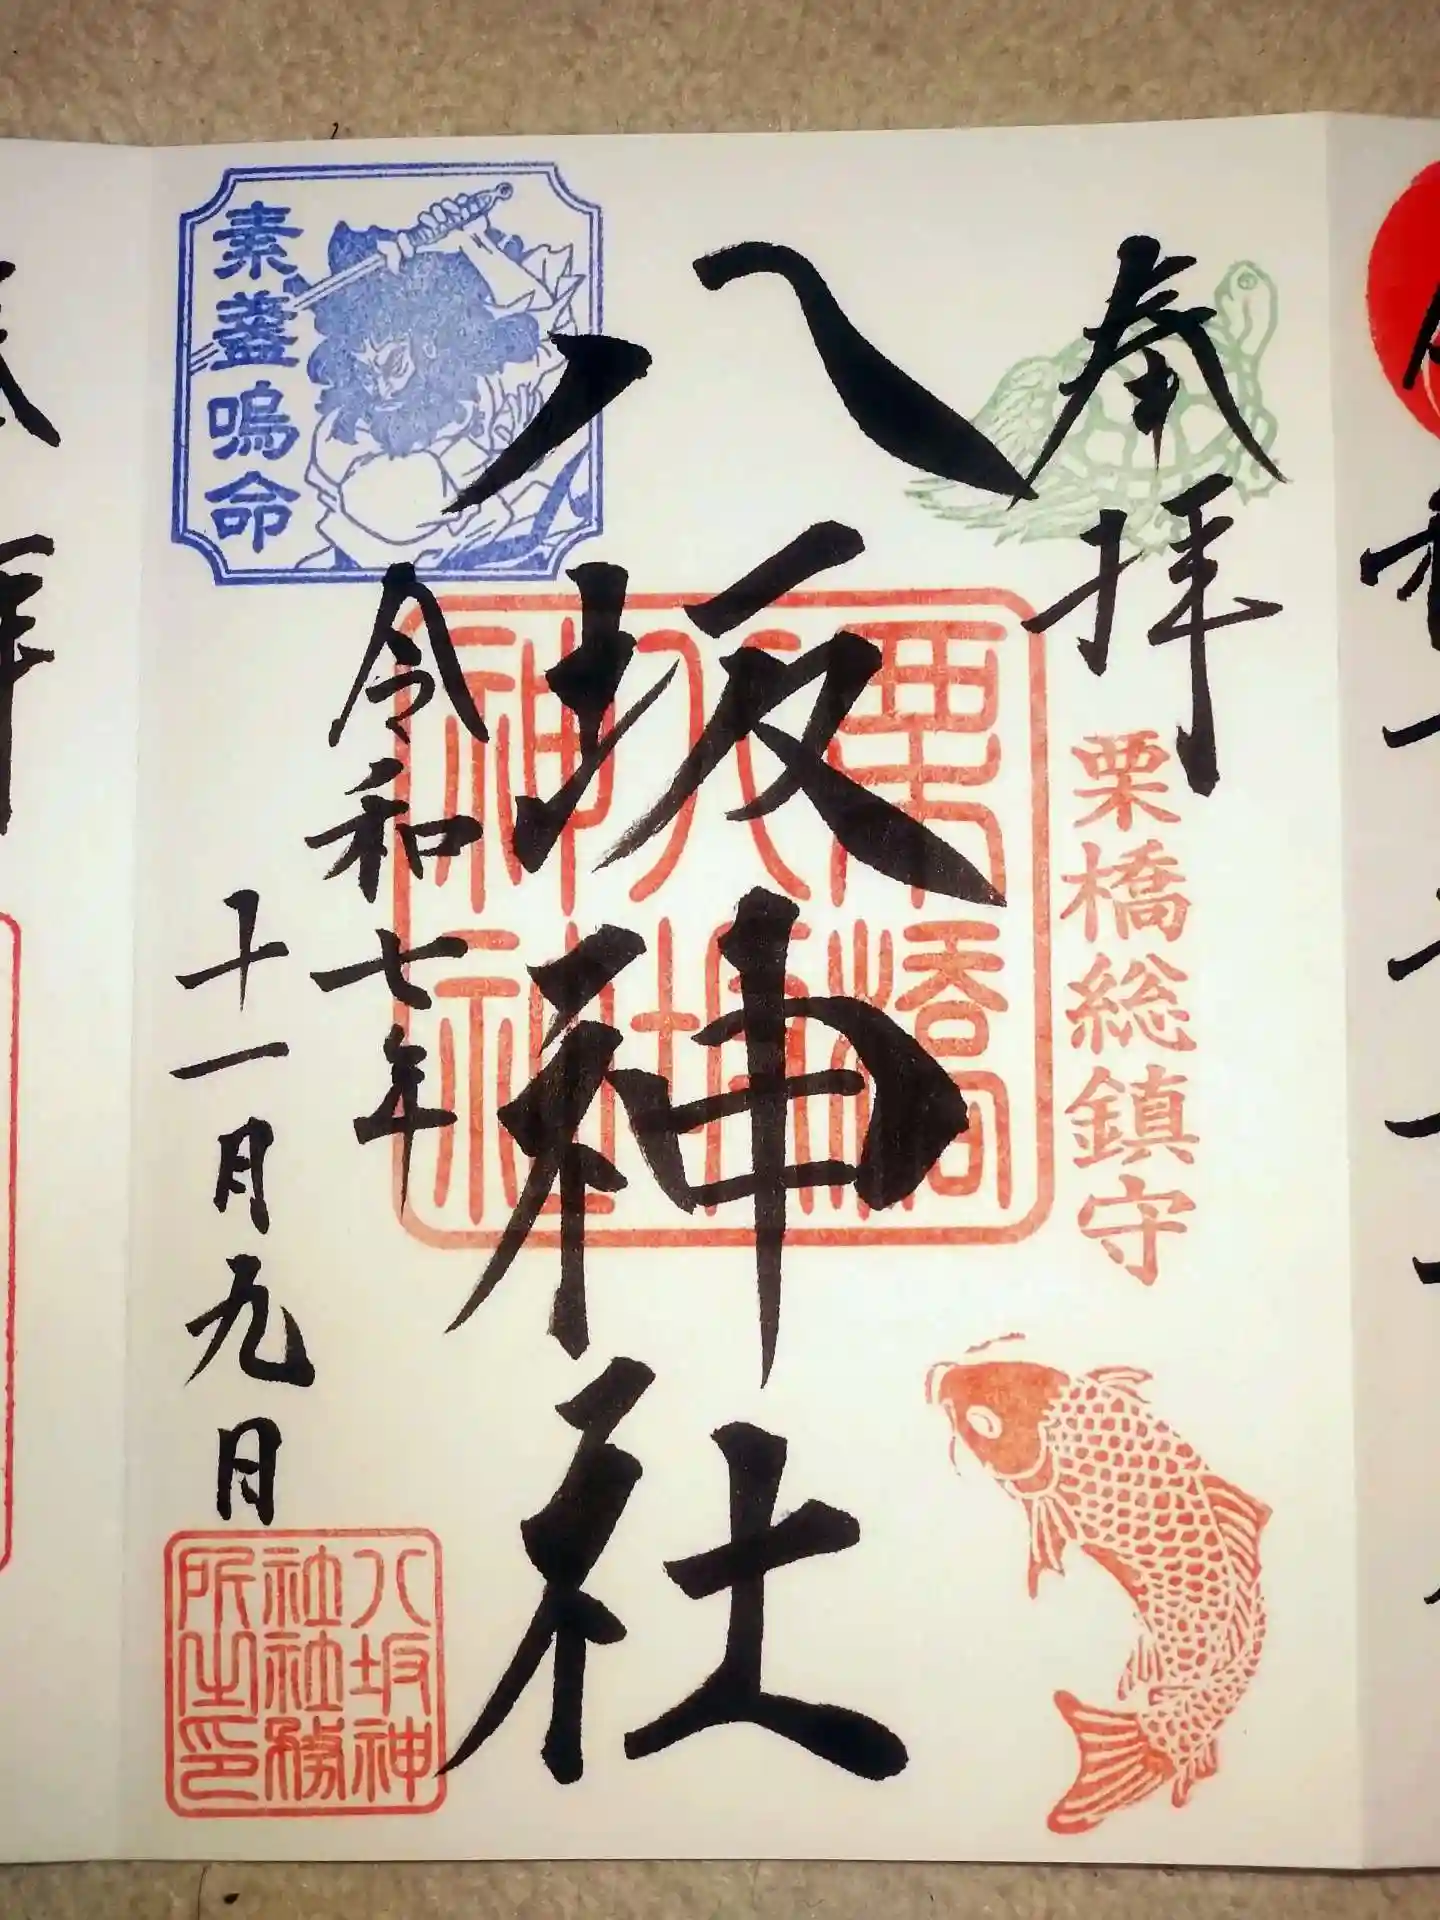 奉拝
栗橋総鎮守
栗橋
八坂
神社
八坂神社
素盞嗚命
令和七年
十一月九日
八坂神
社社務
所之印